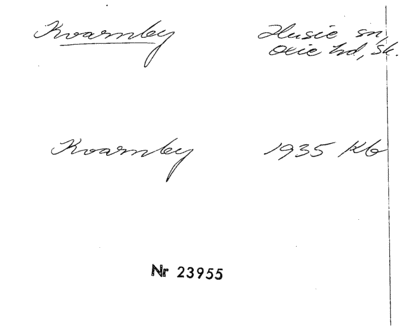 Kvarnby Husie sn,
Oxie hd, Sk.
Kvarnby 1935 Kb
Nr 23955